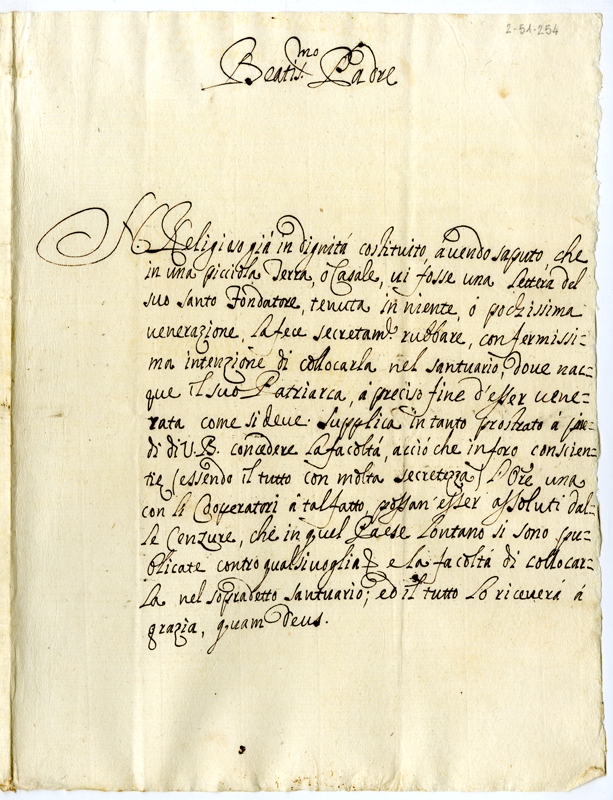 2-51-254
Beatis.mo Padre
N. Religioso già in dignità costituito, avendo saputo, che
in una picciola Terra, o Casale, vi fosse una lettera del
suo Santo Fondatore, tenuta in niente, ò pochissima
venerazione, la fece secretam.te rubbare, con fermissi=
ma intenzione di collocarla nel santuario, dove nac=
que il suo Patriarca, à preciso fine d'esser vene=
rata come si deve. Supplica in tanto prostrato à pie=
di di V.B. concedere la facoltà, acciò che in foro conscien=
tie (essendo il tutto con molta secretezza) l'Ore una
con li Cooperatori à tal fatto, possan'esser assoluti dal=
le Cenzure, che in quel Paese lontano si sono pu=
blicate contro qualsivoglia e la facoltà di collocar=
la nel sopradetto santuario; ed il tutto lo riceverà à
grazia, quam Deus.